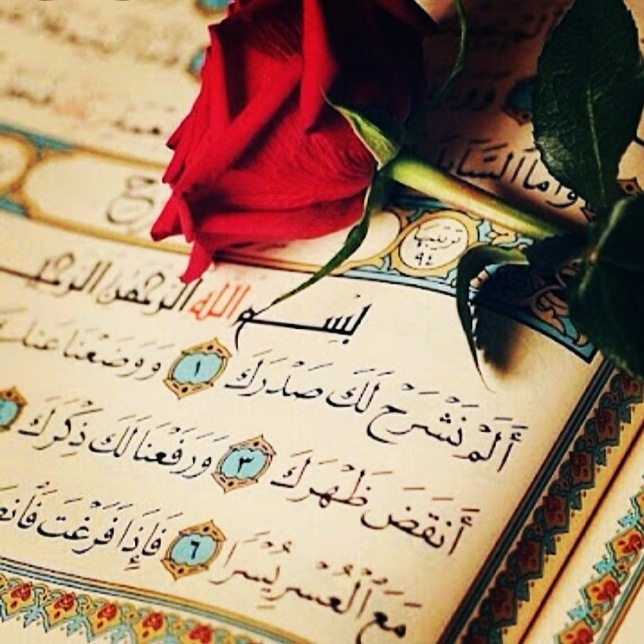 وأما السائل
ترتيبها
٩٤
بسم الله الرحمن الرحيم
أَلَمْ نَشْرَحْ لَكَ صَدْرَكَ ١ وَوَضَعْنَا عَنكَ
أَنقَضَ ظَهْرَكَ ٣ وَرَفَعْنَا لَكَ ذِكْرَكَ
مَعَ ٱلْعُسْرِ يُسْرًا ٦ فَإِذَا فَرَغْتَ فَٱنصَ